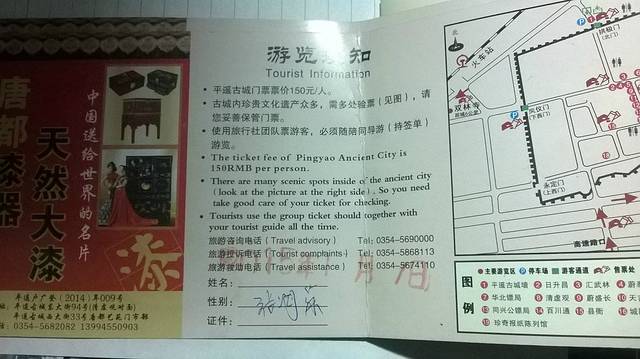 唐都漆器
天然大漆
中国送给世界的名片
漆
平遥户广登（2014）年009号
0354-5682082 13994550903
游览须知
Tourist Information
平遥古城门票票价150元/人。
古城内珍贵文化遗产众多，需多处验票（见图），请
您妥善保管门票。
使用旅行社团队票游客，必须随陪同导游（持签单）
游览。
The ticket fee of Pingyao Ancient City is
150RMB per person.
There are many scenic spots inside of the ancient city
(look at the picture at the right side). So you need
take good care of your ticket for checking.
Tourists use the group ticket should together with
your tourist guide all the time.
旅游咨询电话（Travel advisory） Tel: 0354-5690000
旅游投诉电话（Tourist complaints） Tel: 0354-5868113
旅游救助电话（Travel assistance） Tel: 0354-5674110
姓名：
性别：
证件：
北
火车站
双林寺
拱极门
（北门）
P
P
永定门
（上西门）
南速路口
图例
主要游览区 P 停车场 游客通道 售票处
1 平遥古城墙 2 日升昌 3 汇武林
7 华北镖局 8 清虚观 9 蔚盛长
13 同兴公镖局 14 百川通 15 县衙
19 珍奇报纸陈列馆